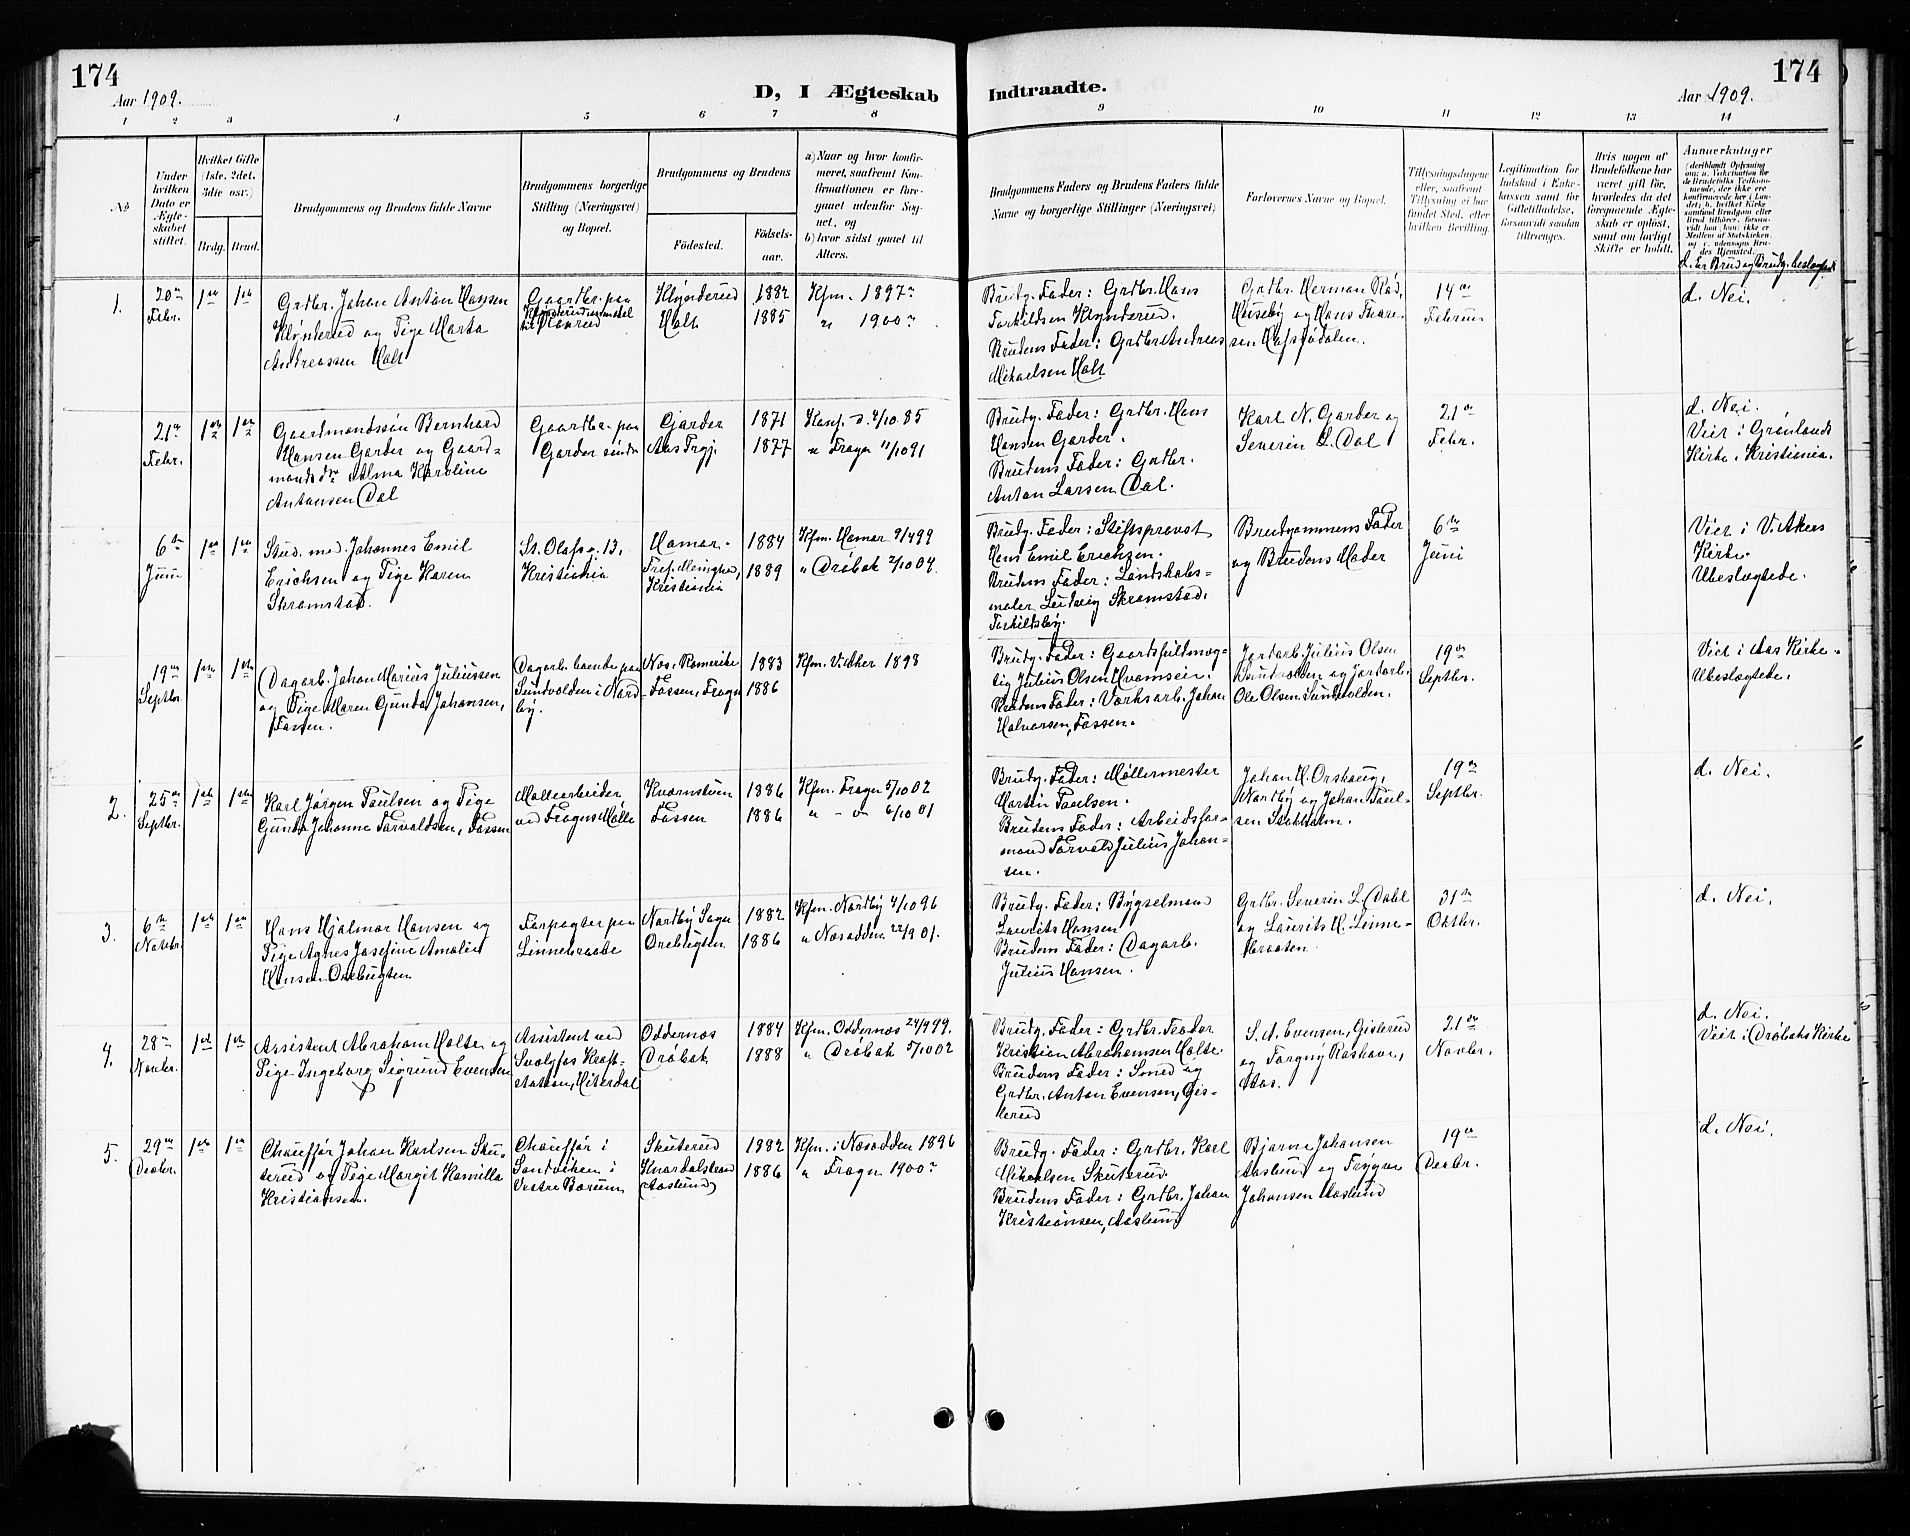 174
174
Aar 1909.
D, I Ægteskab
Indtraadte.
Aar 1909.
1 2 3 4 5 6 7 8
9 10 11 12 13 14
No
Under
hvilken
Dato er
Ægte-
skabet
stiftet.
Hvilket Gifte
(1ste, 2det,
3die osv.)
Brdg.
Brud.
Brudgommens og Brudens fulde Navne
Brudgommens borgerlige
Stilling (Næringsvei)
og Bopæl.
Brudgommens og Brudens
Fødested.
Fødsels-
aar.
a) Naar og hvor konfir-
meret, saafremt Kon-
firmationen er fore-
gaaet udenfor Sog-
net, og
b) hvor sidst gaaet til
Alters.
Brudgommens Faders og Brudens Faders fulde
Navne og borgerlige Stillinger (Næringsvei)
Forlovernes Navne og Bopæl.
Tillysningsdagene
eller, saafremt
Tillysning ei har
fundet Sted, efter
hvilken Bevilling.
Legitimation for
Indskud i Enke-
kassen samt for
Giftetilladelse,
forsaavidt saadan
tiltrænges.
Hvis nogen af
Brudefolkene har
været gift før,
hvorledes da det
foregaaende Ægte-
skab er opløst,
samt om lovligt
Skifte er holdt.
Anmærkninger
d. Er Brud og Brudg. beslægtede
1.
20de
Febr.
1ste 1ste
Grdbr. Johan Anton Hansen
Klynderud og Pige Marta
Andreassen Holt
Gaardbr. paa
Klynderud
Holt
1882
1885
Kfm. 1897
" 1900
Brudg. Fader: Grdbr. Hans
Torkildsen Klynderud.
Brudens Fader: Grdbr Andreas
Mikaelsen Holt
Grdbr. Herman Rød,
Huseby og Hans Thore-
sen
14de
Februar
d. Nei.
21de
Febr.
1ste 1ste
Gaardmandssøn Bernhard
Hansen Garder og Gaard-
mandsdr Alma Karoline
Antonsen Dal
Gaardbr. paa
Garder søndre
Garder
Aas Prgj.
1871
1877
Konf. d. 4/10 85
" Frogn 11/10 91
Brudg. Fader: Grdbr. Hans
Hansen Garder.
Brudens Fader: Grdbr.
Anton Larsen Dal.
Karl N. Garder og
Severin L. Dal
21de
Febr.
d. Nei.
Viet i Grønlands
Kirke, Kristiania.
6te
Juni
1ste 1ste
Stud. med. Johannes Emil
Erichsen og Pige Karen
Skramstad.
St. Olafsg. 13,
Kristiania
Hamar.
Kristiania
1884
1889
Kfm. Hamar 9/4 99
" Drøbak 2/10 04.
Brudg. Fader: Stiftsprovst
Hans Emil Erichsen.
Brudens Fader: Landskabs-
maler Ludvig Skramstad,
Torkildsby.
Brudgommens Fader
og Brudens Moder
6te
Juni
Viet i V. Akers
Kirke.
Ubeslægtede.
19de
Septbr.
1ste 1ste
Dagarb. Johan Marius Juliussen
og Pige Maren Gunda Johansen,
Fossen.
Dagarb. boende paa
Sundvolden i Nord-
by.
Nes, Romerike
Fossen, Frogn
1883
1886
Kfm. Vidker 1898
Brudg. Fader: Gaardsfuldmæg-
tig Julius Olsen Kvamseie.
Brudens Fader: Værksarb. Johan
Halvorsen, Fossen.
Jordarb. Julius Olsen
Sundvolden og Jordarb.
Ole Olsen Sundvolden.
19de
Septbr.
Viet i Aas Kirke.
Ubeslægtede.
2.
25de
Septbr.
1ste 1ste
Karl Jørgen Paulsen og Pige
Gunda Johanne Torvaldsen, Fossen
Møllearbeider
ved Frogns Mølle
Kvarnstuen
Fossen
1886
1886
Kfm. Frogn 5/10 02
" - " 6/10 01
Brudg. Fader: Møllermester
Martin Paulsen.
Brudens Fader: Arbeidsfor-
mand Torvald Julius Johan-
sen.
Johan H. Orshaug,
Nordby og Johan Paul-
sen Stokholm.
19de
Septbr.
d. Nei.
3.
6te
Novbr.
1ste 1ste
Hans Hjalmar Hansen og
Pige Agnes Josefine Amalie
Hansen Orebugten
Forpagter paa
Linnebraate
Nordby Sogn
Orebugten
1882
1886
Kfm. Nordby 4/10 96
" Nesodden 22/9 01.
Brudg. Fader: Bygselmand
Laurits Hansen
Brudens Fader: Dagarb.
Julius Hansen.
Grdbr. Severin L. Dahl
og Laurits H. Linne-
braaten.
31te
Oktbr.
d. Nei.
4.
28de
Novbr.
1ste 1ste
Assistent Abraham Holte og
Pige Ingeborg Sigrund Evensen
Assistent ved
Svælgfos Kraft-
station, Hiterdal
Oddernes
Drøbak
1884
1888
Kfm. Oddernes 24/9 99.
" Drøbak 5/10 02
Brudg. Fader: Grdbr. Feodor
Kristian Abrahamsen Holte.
Brudens Fader: Smed og
Grdbr. Anton Evensen, Gis-
lerud
S. A. Evensen, Gislerud
og Torgny Rashave,
Aas.
21de
Novbr.
d. Nei.
Viet i Drøbaks Kirke
5.
29de
Decbr.
1ste 1ste
Chauffør Johan Karlsen Sku-
terud og Pige Margit Kamilla
Kristiansen.
Chauffør i
Sandviken i
Vestre Bærum
Skuterud
(Aaslund)
1882
1886
Kfm. i Nesodden 1896
" Frogn 1900
Brudg. Fader: Grdbr. Karl
Mikaelsen Skuterud.
Brudens Fader: Grdbr. Johan
Kristiansen, Aaslund
Bjarne Johansen
Aaslund og Trygve
Johansen Aaslund
19de
Decbr.
d. Nei.